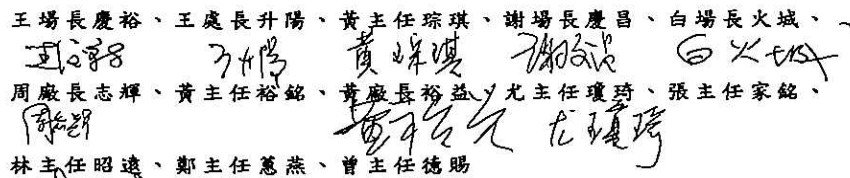 王場長慶裕、王處長升陽、黃主任琮琪、謝場長慶昌、白場長火城、
黃琮琪 白火城
周廠長志輝、黃主任裕銘、黃廠長裕益、尤主任瓊琦、張主任家銘、
尤瓊琦
林主任昭遠、鄭主任蕙燕、曾主任德賜